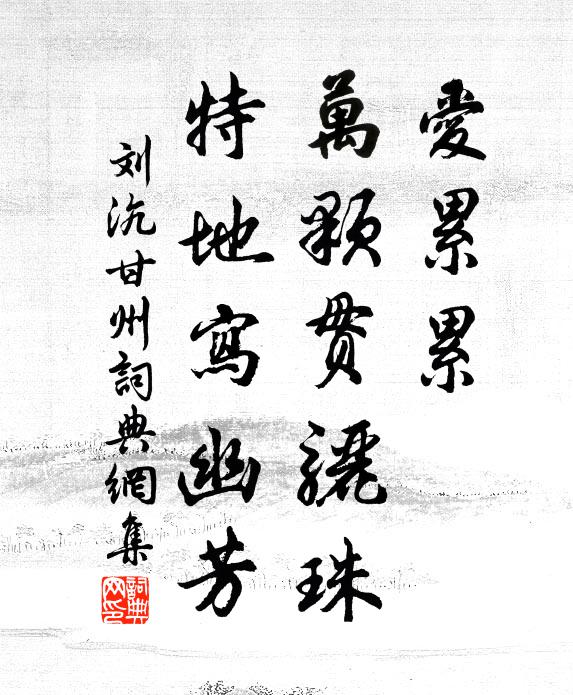 愛累累
萬顆貫驪珠
特地寫幽芳
刘沆甘州詞典網集
詞典網印